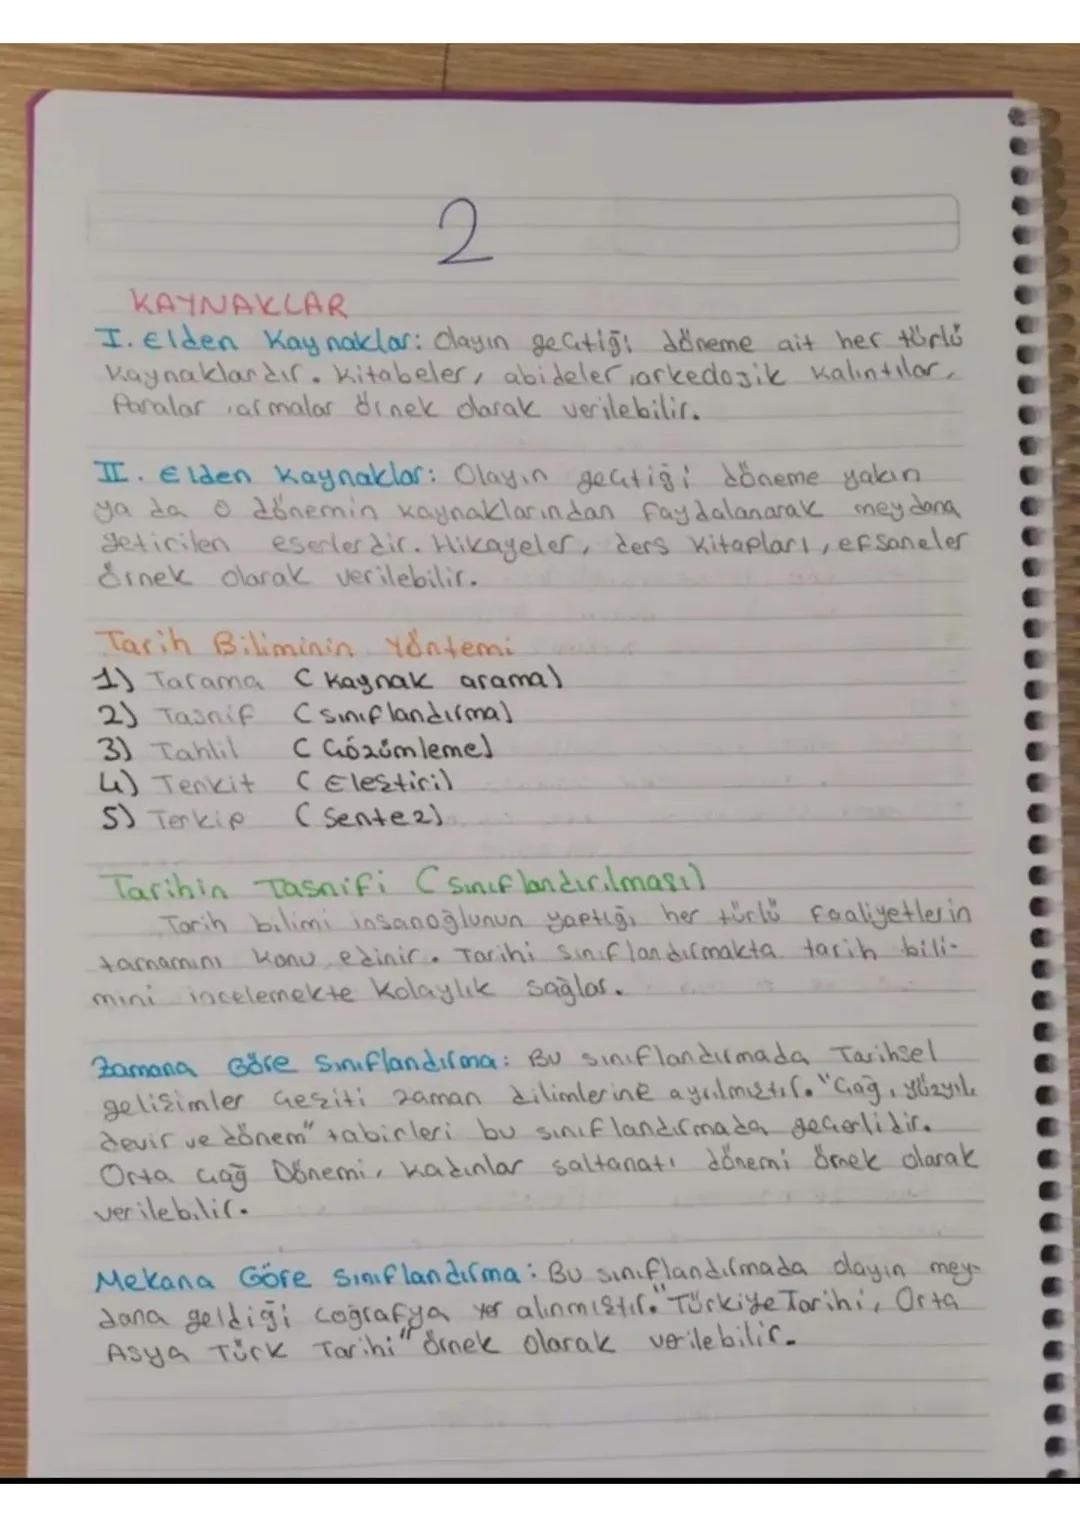 2
KAYNAKLAR
I. Elden Kaynaklar: Olayın geçtiği döneme ait her türlü
kaynaklardır. Kitabeler, abideler, arkedozik kalıntılar,
Paralar, armalar örnek olarak verilebilir.
II. Elden Kaynaklar: Olayın geçtiği döneme yakın
ya da o dönemin kaynaklarından faydalanarak meydana
getirilen eserlerdir. Hikayeler, ders kitapları, efsaneler
örnek olarak verilebilir.
Tarih Biliminin Yöntemi
1) Tarama (Kaynak arama)
2) Tasnif (sınıflandırma)
3) Tahlil (Çözümleme)
4) Tenkit (Eleştiri)
5) Terkip (Sentez)
Tarihin Tasnifi (sınıflandırılması)
Tarih bilimi insanoğlunun yaptığı her türlü faaliyetlerin
tamamını konu edinir. Tarihi sınıflandırmakta tarih bili-
mini incelemekte kolaylık sağlar.
Zamana Göre Sınıflandırma: Bu sınıflandırmada Tarihsel
gelişimler çeşitli zaman dilimlerine ayrılmıştır. "Çağ, yüzyıl,
devir ve dönem" tabirleri bu sınıflandırmada geçerlidir.
Orta çağ Dönemi, kadınlar saltanatı dönemi örnek olarak
verilebilir.
Mekana Göre Sınıflandırma: Bu sınıflandırmada olayın mey-
dana geldiği coğrafya yer alınmıştır. "Türkiye Tarihi, Orta
Asya Türk Tarihi" örnek olarak verilebilir.